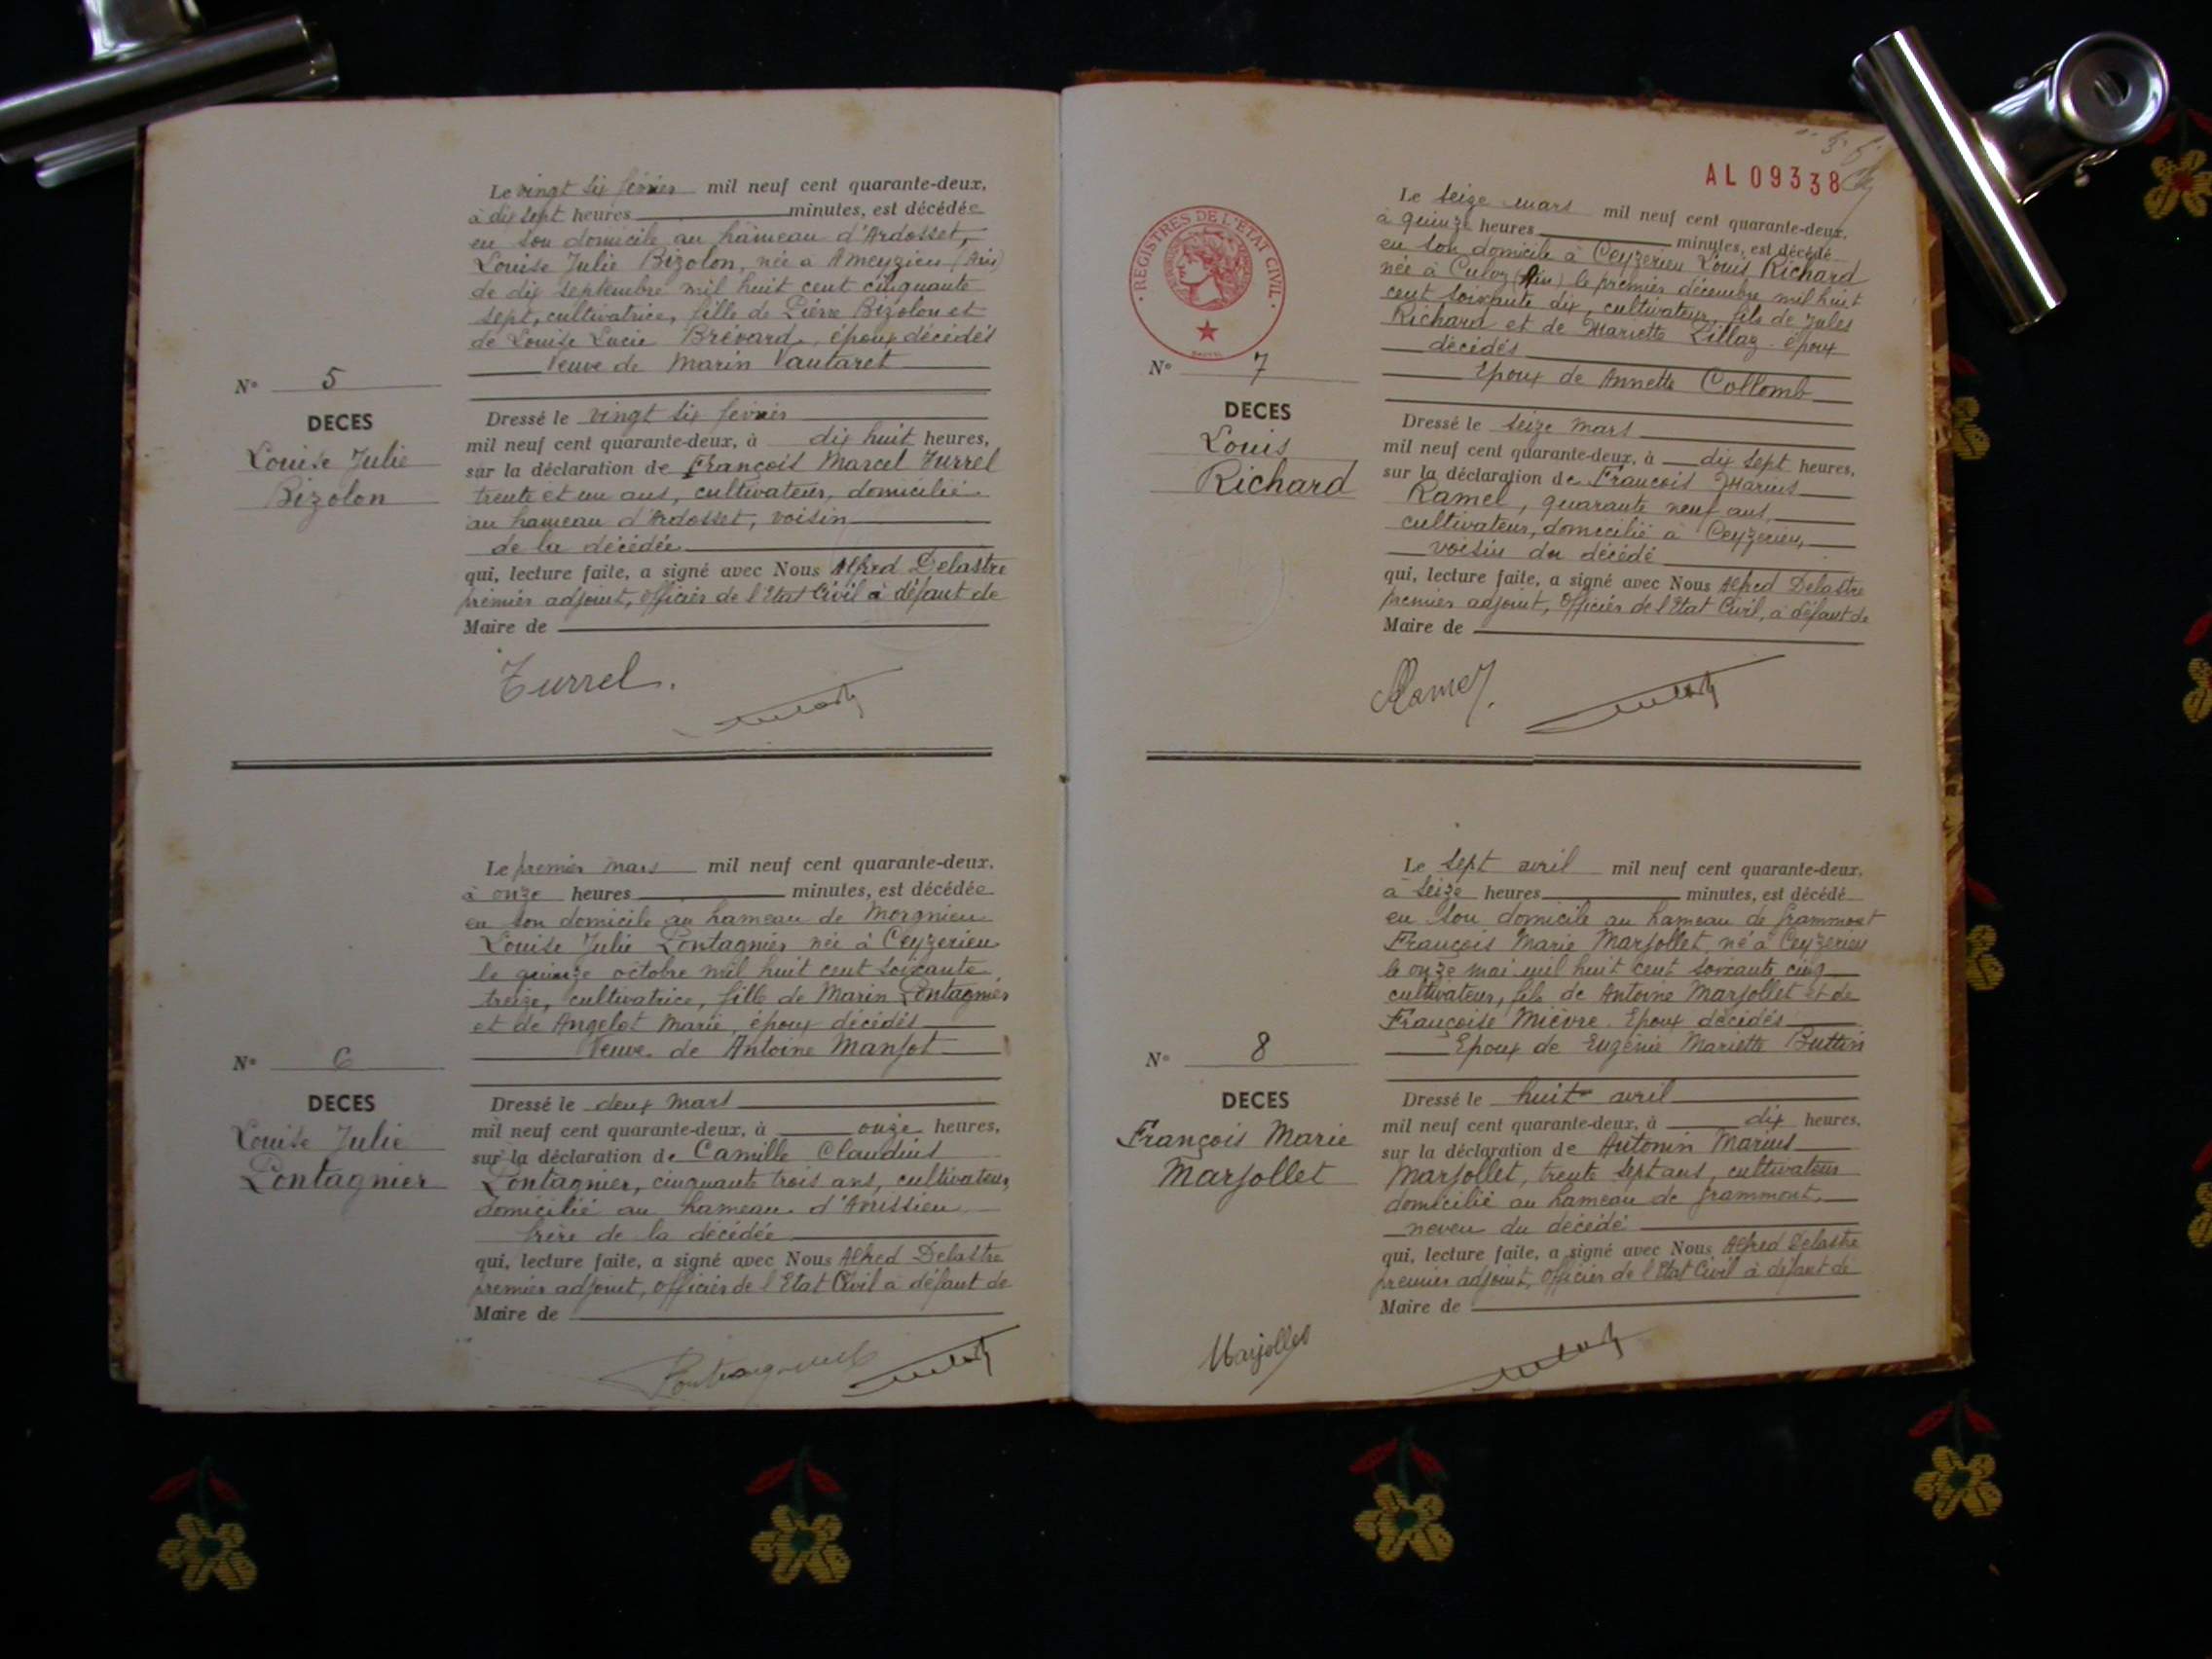 Le vingt six février mil neuf cent quarante-deux,
à dix sept heures minutes, est décédée
en son domicile au hameau d'Ardosset,
Louise Julie Bizolon, née à Ameyzieu (Ain)
de dix septembre mil huit cent cinquante
sept, cultivatrice, fille de Pierre Bizolon et
de Louise Lucie Brévard, époux décédés
Veuve de Marin Vautaret
N° 5
DECES
Louise Julie
Bizolon
Dressé le vingt six février
mil neuf cent quarante-deux, à dix huit heures,
sur la déclaration de François Marcel Turrel
trente et un ans, cultivateur, domicilié
au hameau d'Ardosset, voisin
de la décédée
qui, lecture faite, a signé avec Nous Alfred Delastre
premier adjoint, Officier de l'Etat Civil à défaut de
Maire de
Turrel.
Le premier mars mil neuf cent quarante-deux,
à onze heures minutes, est décédée
en son domicile au hameau de Morgnieu
Louise Julie Pontagnier née à Ceyzerieu
le quinze octobre mil huit cent soixante
treize, cultivatrice, fille de Marin Pontagnier
et de Angelot Marie, époux décédés
Veuve de Antoine Manjot
N° 6
DECES
Louise Julie
Pontagnier
Dressé le deux mars
mil neuf cent quarante-deux, à onze heures,
sur la déclaration de Camille Claudius
Pontagnier, cinquante trois ans, cultivateur,
domicilié au hameau d'Avrissieu
frère de la décédée
qui, lecture faite, a signé avec Nous Alfred Delastre
premier adjoint, Officier de l'Etat Civil à défaut de
Maire de
AL 09338
REGISTRES DE L'ETAT CIVIL
Le seize mars mil neuf cent quarante-deux,
à quinze heures minutes, est décédé
en son domicile à Ceyzerieu Louis Richard
née à Culoz (Ain) le premier décembre mil huit
cent soixante dix, cultivateur, fils de Jules
Richard et de Mariette Lillaz époux
décédés
Epoux de Annette Collomb
N° 7
DECES
Louis
Richard
Dressé le seize mars
mil neuf cent quarante-deux, à dix sept heures,
sur la déclaration de François Marius
Ramel, quarante neuf ans,
cultivateur, domicilié à Ceyzerieu,
voisin du décédé
qui, lecture faite, a signé avec Nous Alfred Delastre
premier adjoint, Officier de l'Etat Civil, à défaut de
Maire de
Ramel.
Le sept avril mil neuf cent quarante-deux,
à seize heures minutes, est décédé
en son domicile au hameau de grammont
François Marie Marjollet, né à Ceyzerieu
le onze mai mil huit cent soixante cinq
cultivateur, fils de Antoine Marjollet et de
Françoise Mièvre. Epoux décédés
Epoux de Eugénie Mariette Buttin
N° 8
DECES
François Marie
Marjollet
Dressé le huit avril
mil neuf cent quarante-deux, à dix heures,
sur la déclaration de Antonin Marius
Marjollet, trente sept ans, cultivateur
domicilié au hameau de grammont,
neveu du décédé
qui, lecture faite, a signé avec Nous Alfred Delastre
premier adjoint, Officier de l'Etat Civil à défaut de
Maire de
Marjollet